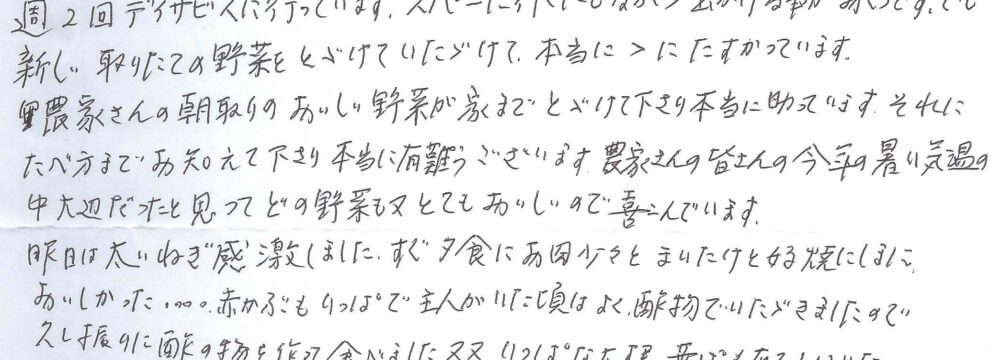 週2回デイサービスに行っています。
新しい取りたての野菜をとどけていただけて、本当に たすかっています。
農家さんの朝取りのおいしい野菜が家までとどけて下さり本当に助っています。それに
たべ方までお知えて下さり本当に有難うございます。農家さんの皆さんの今年の暑い気温の
中大辺だったと見ってどの野菜も又とてもおいしいので喜こんでいます。
昨日は太いねぎ感激しました。すぐ夕食にお肉少々とまいたけと 焼にしました
おいしかった.....赤かぶもりっぱで主人がいた頃はよく酢物でいただきましたので
久し振りに酢の物を作って食べました